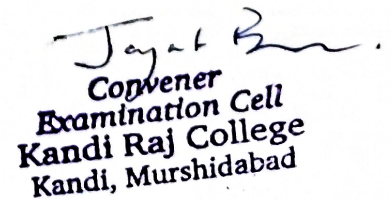 Convener
Examination Cell
Kandi Raj College
Kandi, Murshidabad